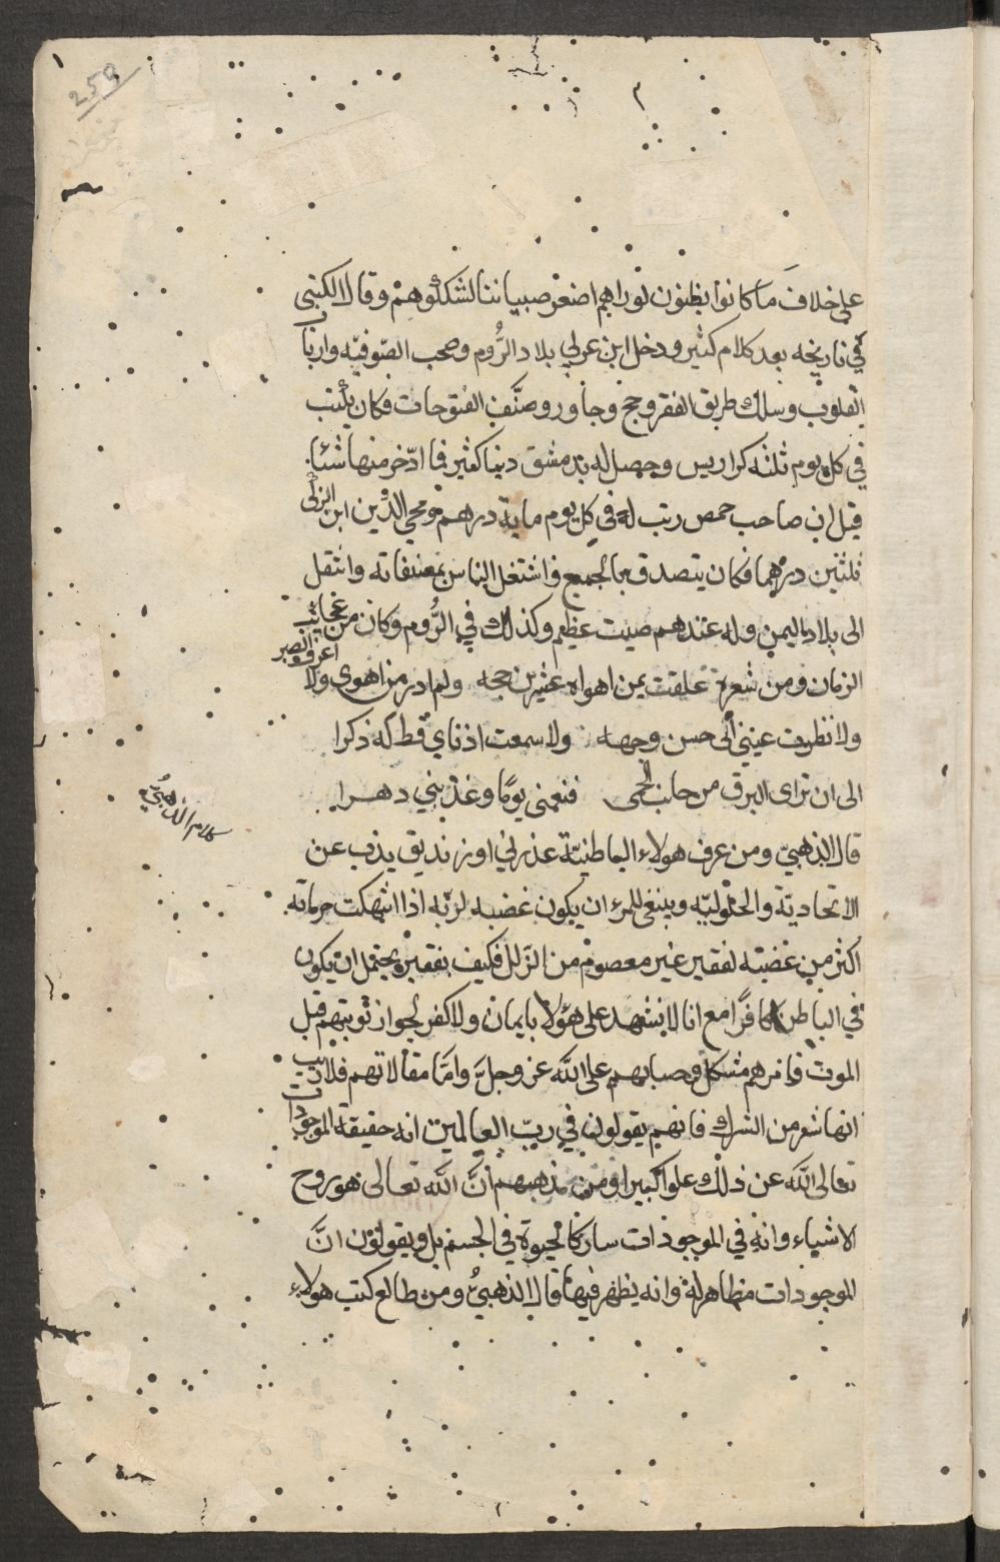 259
٣
على خلاف ما كانوا يظنون لو راهم اضغر صبياننا لشككوهم وقال الكتبى
في تاريخه بعد كلام كثير ودخل ابن عربي بلاد الرُّوم وصحب الصّوفيّه وارباب
القلوب وسلك طريق الفقر وحج وجاور وصنَّف الفتوحات فكان يكتب
في كل يوم ثلثه كراريس وحصل له بدمشق دنيا كثير فما ادّخر منها شئا
قيل ان صاحب حمص رتب له في كل يوم ماية درهم ومحي الدّين ابن الزكى
ثلثين درهما فكان يتصدق بالجميع واشتغل الناس بمصنفاته وانتقل
الى بلاد اليمن وله عندهم صيت عظيم وكذلك في الرُّوم وكان من عجائب
الزمان ومن شعره علقت بمن اهواه عشرين حجه ولم ادر من اهوى ولا اعرف الصبر
ولا نظرت عيني الى حسن وجهه ولا سمعت اذناي قط له ذكرا
الى ان تراى البرق من جانب الحمى فنعمنى يومًا وعذبني دهرا
كلام الذهبي
قال الذهبيّ ومن عرف هولاء الباطنيّة عذرني او زنديق يذب عن
الاتحادية والحلوليّه وينبغى للمرء ان يكون غضبه لربّه اذا انتهكت حرماته
اكثر من غضبه لفقير غير معصوم من الزلل فكيف بفقير يحتمل ان يكون
في الباطن كافرًا مع انا لا نشهد على هؤلا بايمان ولا كفر لجواز توبتهم قبل
الموت وامرهم مشكل وحسابهم على الله عز وجلّ وامّا مقالاتهم فلا ريب
انها شر من الشرك فانهم يقولون في ربّ العالمين انه حقيقة الموجودات
تعالى الله عن ذلك علوا كبيرا ومن مذهبهم انّ الله تعالى هو روح
الاشياء وانه في الموجودات سار كالحيوة في الجسم بل ويقولون انَّ
الموجودات مظاهر له وانه يظهر فيها قال الذهبيُّ ومن طالع كتب هولاء